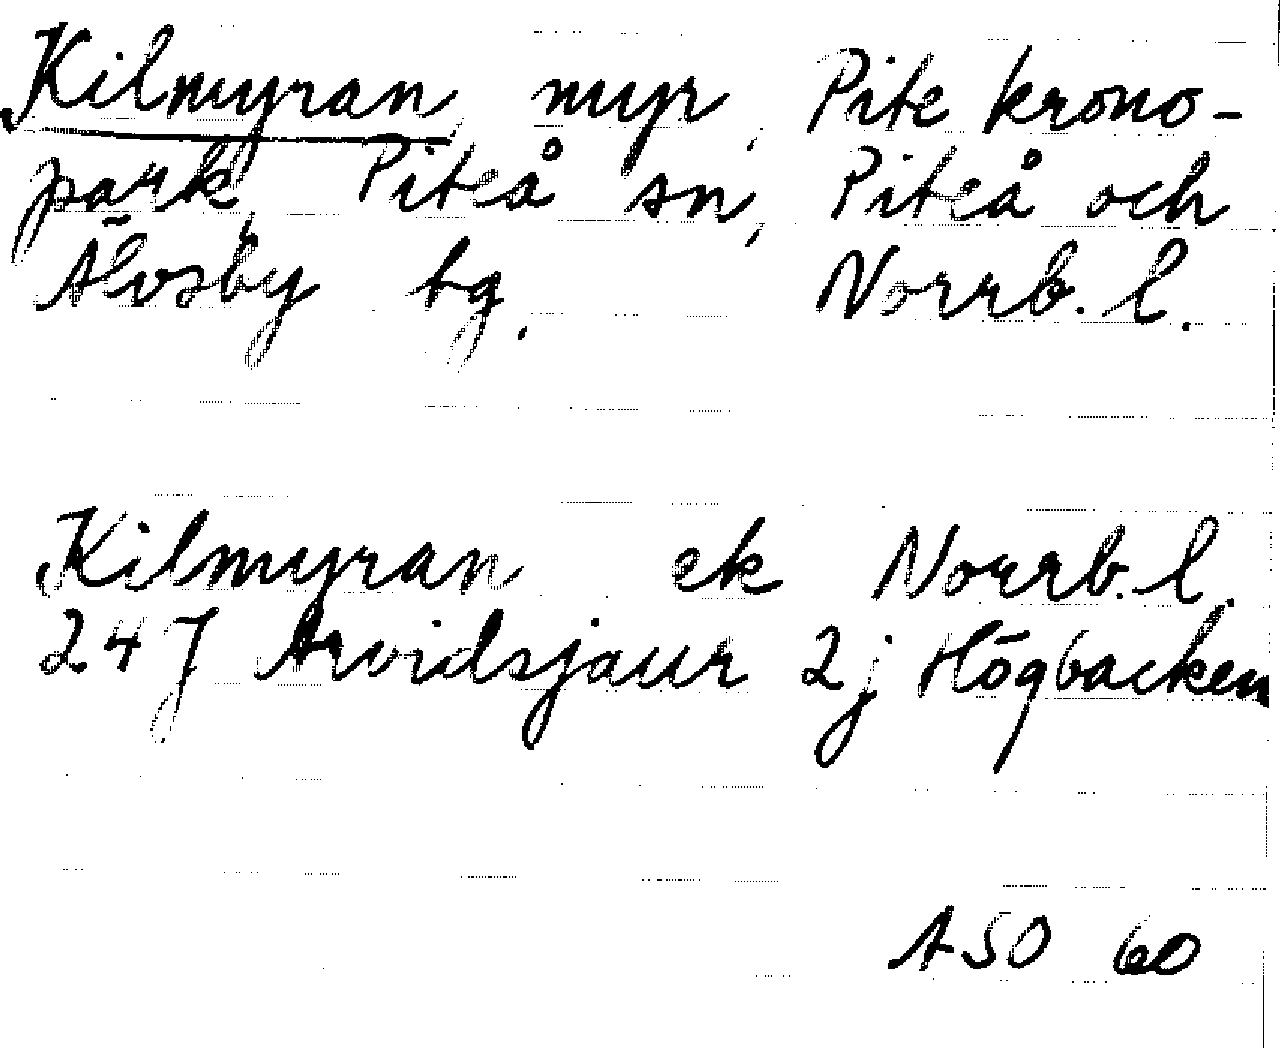 Kilmyran, myr, Pite krono-
park, Piteå sn, Piteå och
Älvsby tg. Norrb. l.
Kilmyran ek Norrb. l.
24 J Arvidsjaur 2j Högbacken
ASO 60